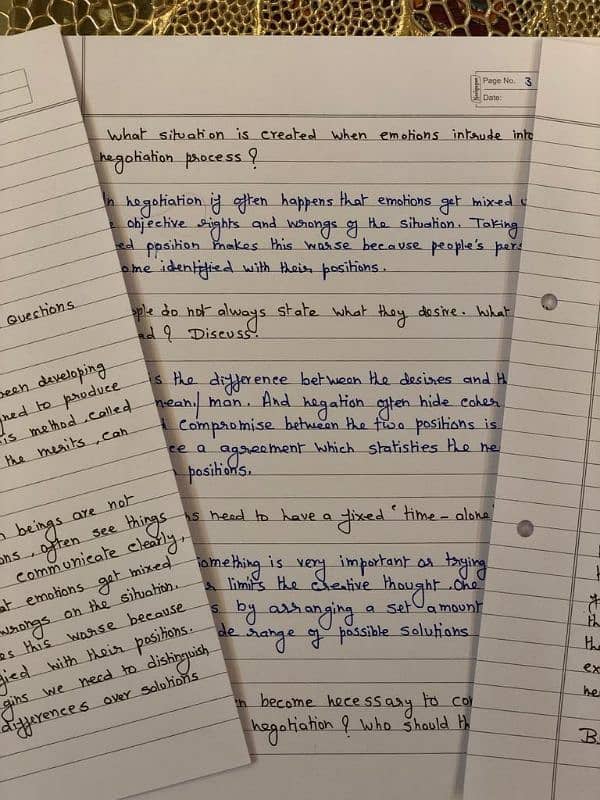 Page No. 3
Date:
What situation is created when emotions intrude into
negotiation process ?
negotiation if often happens that emotions get mixed
objective rights and wrongs of the situation. Taking
ppsition makes this worse because people's
identified with their positions.
do not always state what they desire. What
? Discuss.
is the difference between the desires and
mean/ man. And negation often hide
Compromise between the two positions is
a agreement which statisties the
positions.
need to have a fixed " time - alone
something is very important or trying
limits the creative thought. One
by arranging a set amount
range of possible solutions
become necessary to
negotiation ? Who should
Questions
been developing
to produce
method called
the merits, can
beings are not
often see things
communicate clearly,
emotions get mixed
wrongs on the situation.
this worse because
with their positions.
we need to distinguish
differences over solutions